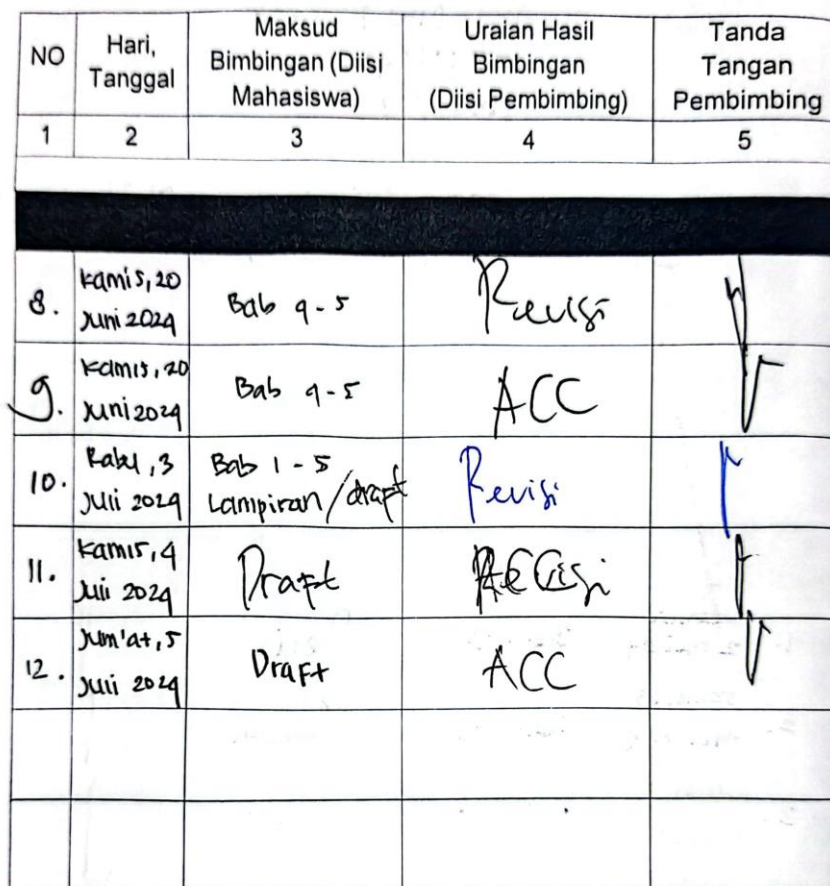 NO
Hari,
Tanggal
Maksud
Bimbingan (Diisi
Mahasiswa)
Uraian Hasil
Bimbingan
(Diisi Pembimbing)
Tanda
Tangan
Pembimbing
1 2 3 4 5
8.
Kamis, 20
Juni 2024
Bab 4-5
Revisi
9.
Kamis, 20
Juni 2024
Bab 4-5
ACC
10.
Rabu, 3
Juli 2024
Bab 1-5
Lampiran/draft
Revisi
11.
Kamis, 4
Juli 2024
Draft
12.
Jum'at, 5
Juli 2024
Draft
ACC